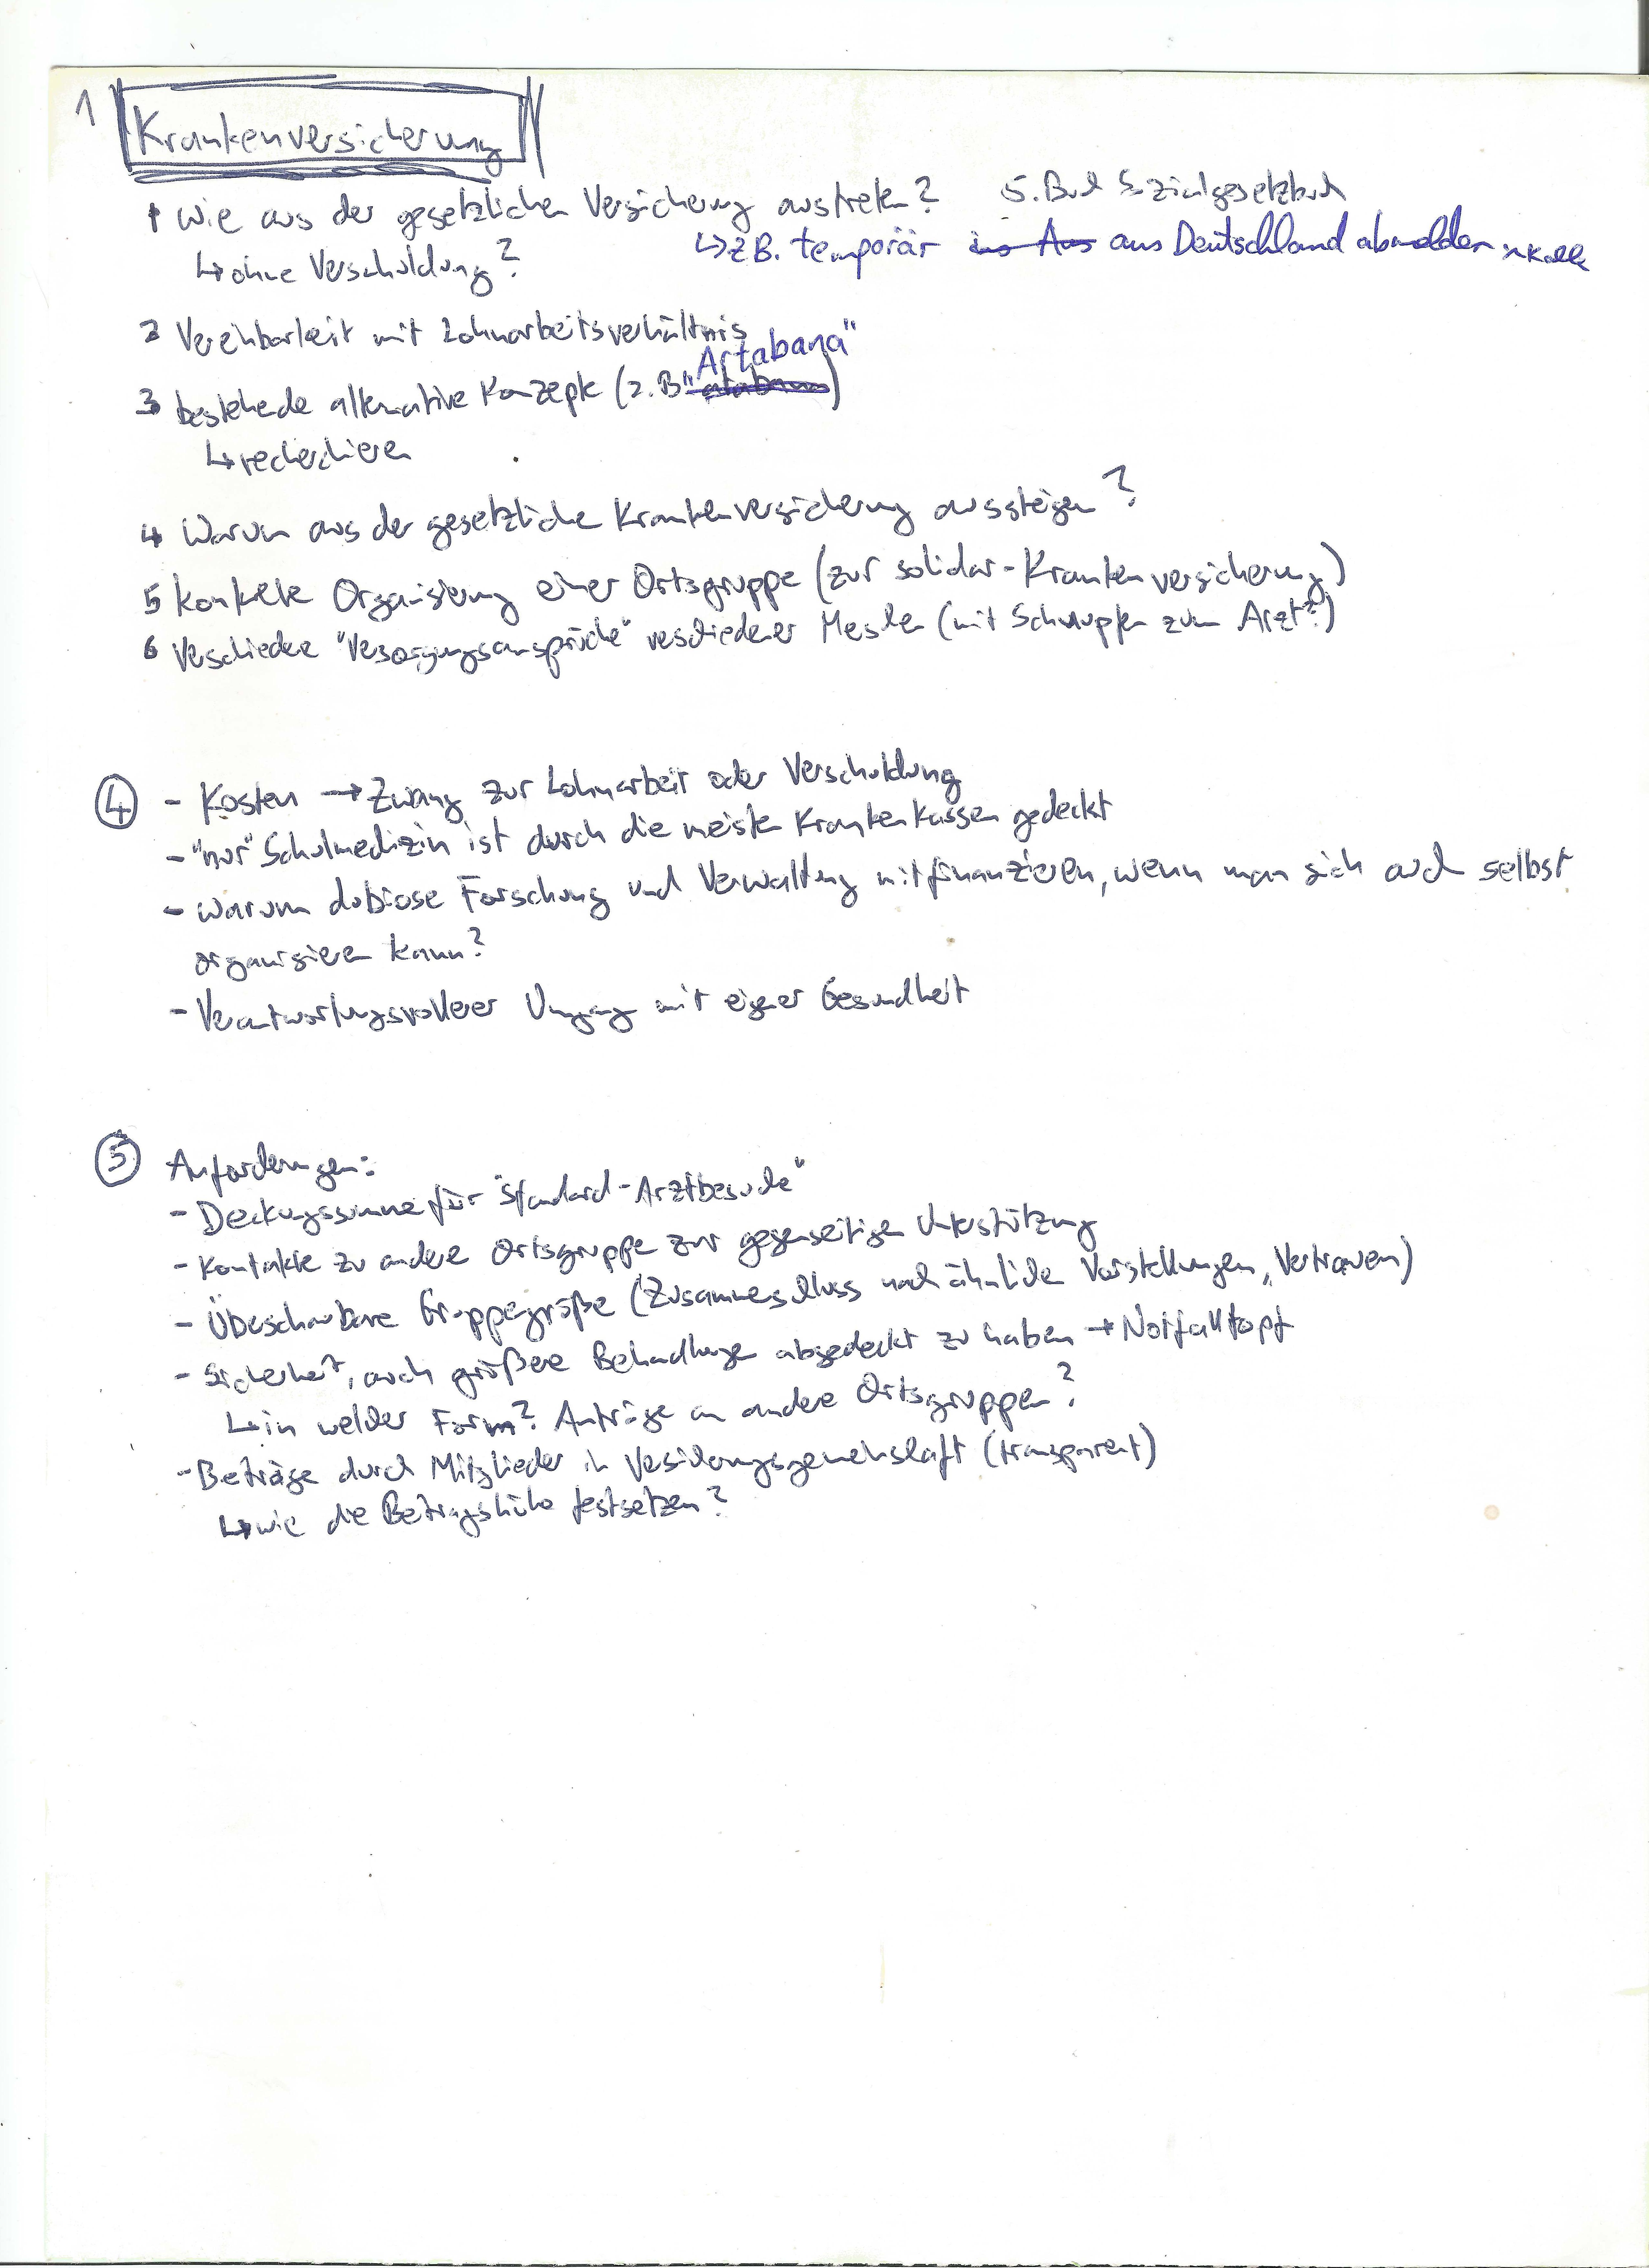 1 Krankenversicherung
1 Wie aus der gesetzlichen Versicherung austreten? 5. Buch Sozialgesetzbuch
↳ ohne Verschuldung? ↳ z.B. temporär ins Aus aus Deutschland abmelden
2 Vereinbarkeit mit Lohnarbeitsverhältnis
3 bestehende alternative Konzepte (z.B. "Artabana")
↳ recherchieren
4 Warum aus der gesetzliche Krankenversicherung aussteigen?
5 konkrete Organisierung einer Ortsgruppe (zur solidar-Krankenversicherung)
6 Verschiedene "Versorgungsansprüche" verschiedener Menschen (mit Schnupfen zum Arzt?)
④ - Kosten → Zwang zur Lohnarbeit oder Verschuldung
- "nur" Schulmedizin ist durch die meisten Krankenkassen gedeckt
- warum dubiose Forschung und Verwaltung mitfinanzieren, wenn man sich auch selbst
organisieren kann?
- Verantwortungsvollerer Umgang mit eigener Gesundheit
⑤ Anforderungen:
- Deckungssumme für "Standard-Arztbesuche"
- Kontakte zu andere Ortsgruppe zur gegenseitigen Unterstützung
- Überschaubare Gruppengröße (Zusammenschluss nach ähnlichen Vorstellungen, Vertrauen)
- Sicherheit, auch größere Behandlungen abgedeckt zu haben → Notfalltopf
↳ in welcher Form? Anträge an andere Ortsgruppen?
- Beträge durch Mitglieder in Versicherungsgemeinschaft (transparent)
↳ wie die Betragshöhe festsetzen?